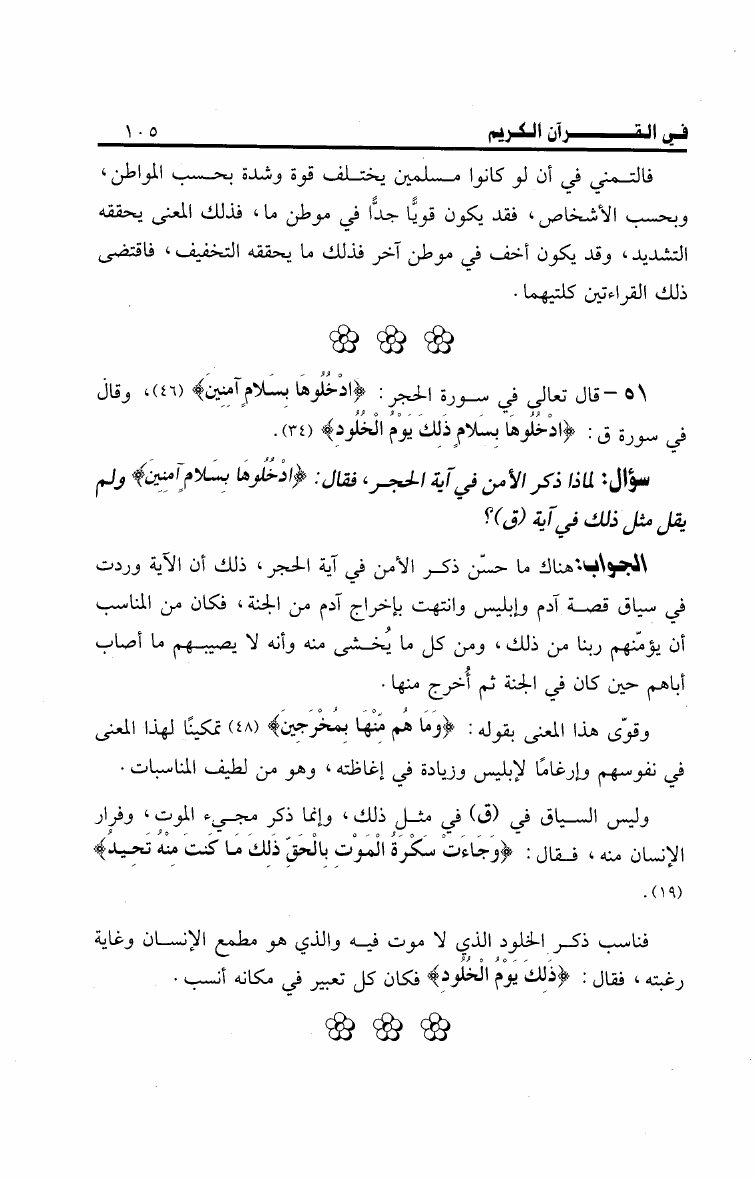 في القـــــــرآن الكريم ١٠٥
فالتـمني في أن لو كانوا مسـلمين يختـلف قوة وشدة بحـسب المواطن،
وبحسب الأشخاص، فقد يكون قويًّا جدًّا في موطن ما، فذلك المعنى يحققه
التشديد، وقد يكون أخف في موطن آخر فذلك ما يحققه التخفيف، فاقتضى
ذلك القراءتين كلتيهما.
٥١ – قال تعالى في سـورة الحجر: ﴿ادْخُلُوهَا بِسَلامٍ آمِنِينَ﴾ (٤٦)، وقال
في سورة ق: ﴿ادْخُلُوهَا بِسَلامٍ ذَلِكَ يَوْمُ الْخُلُودِ﴾ (٣٤).
سؤال: لماذا ذكر الأمن في آية الحجـر، فقال: ﴿ادْخُلُوهَا بِسَلامٍ آمِنِينَ﴾ ولم
يقل مثل ذلك في آية (ق)؟
الجواب: هناك ما حسّن ذكـر الأمن في آية الحجر، ذلك أن الآية وردت
في سياق قصـة آدم وإبليس وانتهت بإخراج آدم من الجنة، فكان من المناسب
أن يؤمّنهم ربنا من ذلك، ومن كل ما يُخـشى منه وأنه لا يصيبـهم ما أصاب
أباهم حين كان في الجنة ثم أُخرج منها.
وقوّى هذا المعنى بقوله: ﴿وَمَا هُم مِّنْهَا بِمُخْرَجِينَ﴾ (٤٨) تمكينًا لهذا المعنى
في نفوسهم وإرغامًا لإبليس وزيادة في إغاظته، وهو من لطيف المناسبات.
وليس السـياق في (ق) في مثـل ذلك، وإنما ذكر مجـيء الموت، وفرار
الإنسان منه، فـقال: ﴿وَجَاءَتْ سَكْرَةُ الْمَوْتِ بِالْحَقِّ ذَلِكَ مَا كُنتَ مِنْهُ تَحِيدُ﴾
(١٩).
فناسب ذكـر الخلود الذي لا موت فيـه والذي هو مطمع الإنسـان وغاية
رغبته، فقال: ﴿ذَلِكَ يَوْمُ الْخُلُودِ﴾ فكان كل تعبير في مكانه أنسب.